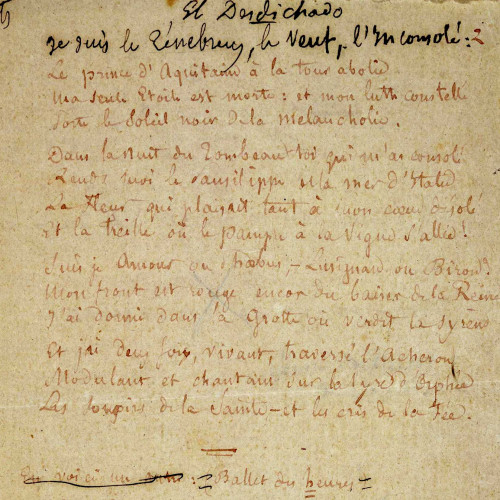 El Desdichado
Je suis le Ténébreux, le Veuf, l'Inconsolé : 2
Le prince d'Aquitaine à la tour abolie
Ma seule Etoile est morte : et mon luth constellé
Porte le Soleil noir de la Melancholie.
Dans la nuit du Tombeau toi qui m'as consolé
Rends moi le Pausilippe et la mer d'Italie
La Fleur qui plaisait tant à mon cœur désolé
Et la treille où le pampre à la Vigne s'allie !
Suis je Amour ou Phœbus, – Lusignan ou Biron ?
Mon front est rouge encor du baiser de la Reine
J'ai dormi dans la Grotte où verdit la syrène
Et j'ai deux fois, vivant, traversé l'Acheron
Modulant et chantant sur la lyre d'Orphée
Les soupirs de la Sainte – et les cris de la Fée.
En voici un autre : = Ballet des heures =